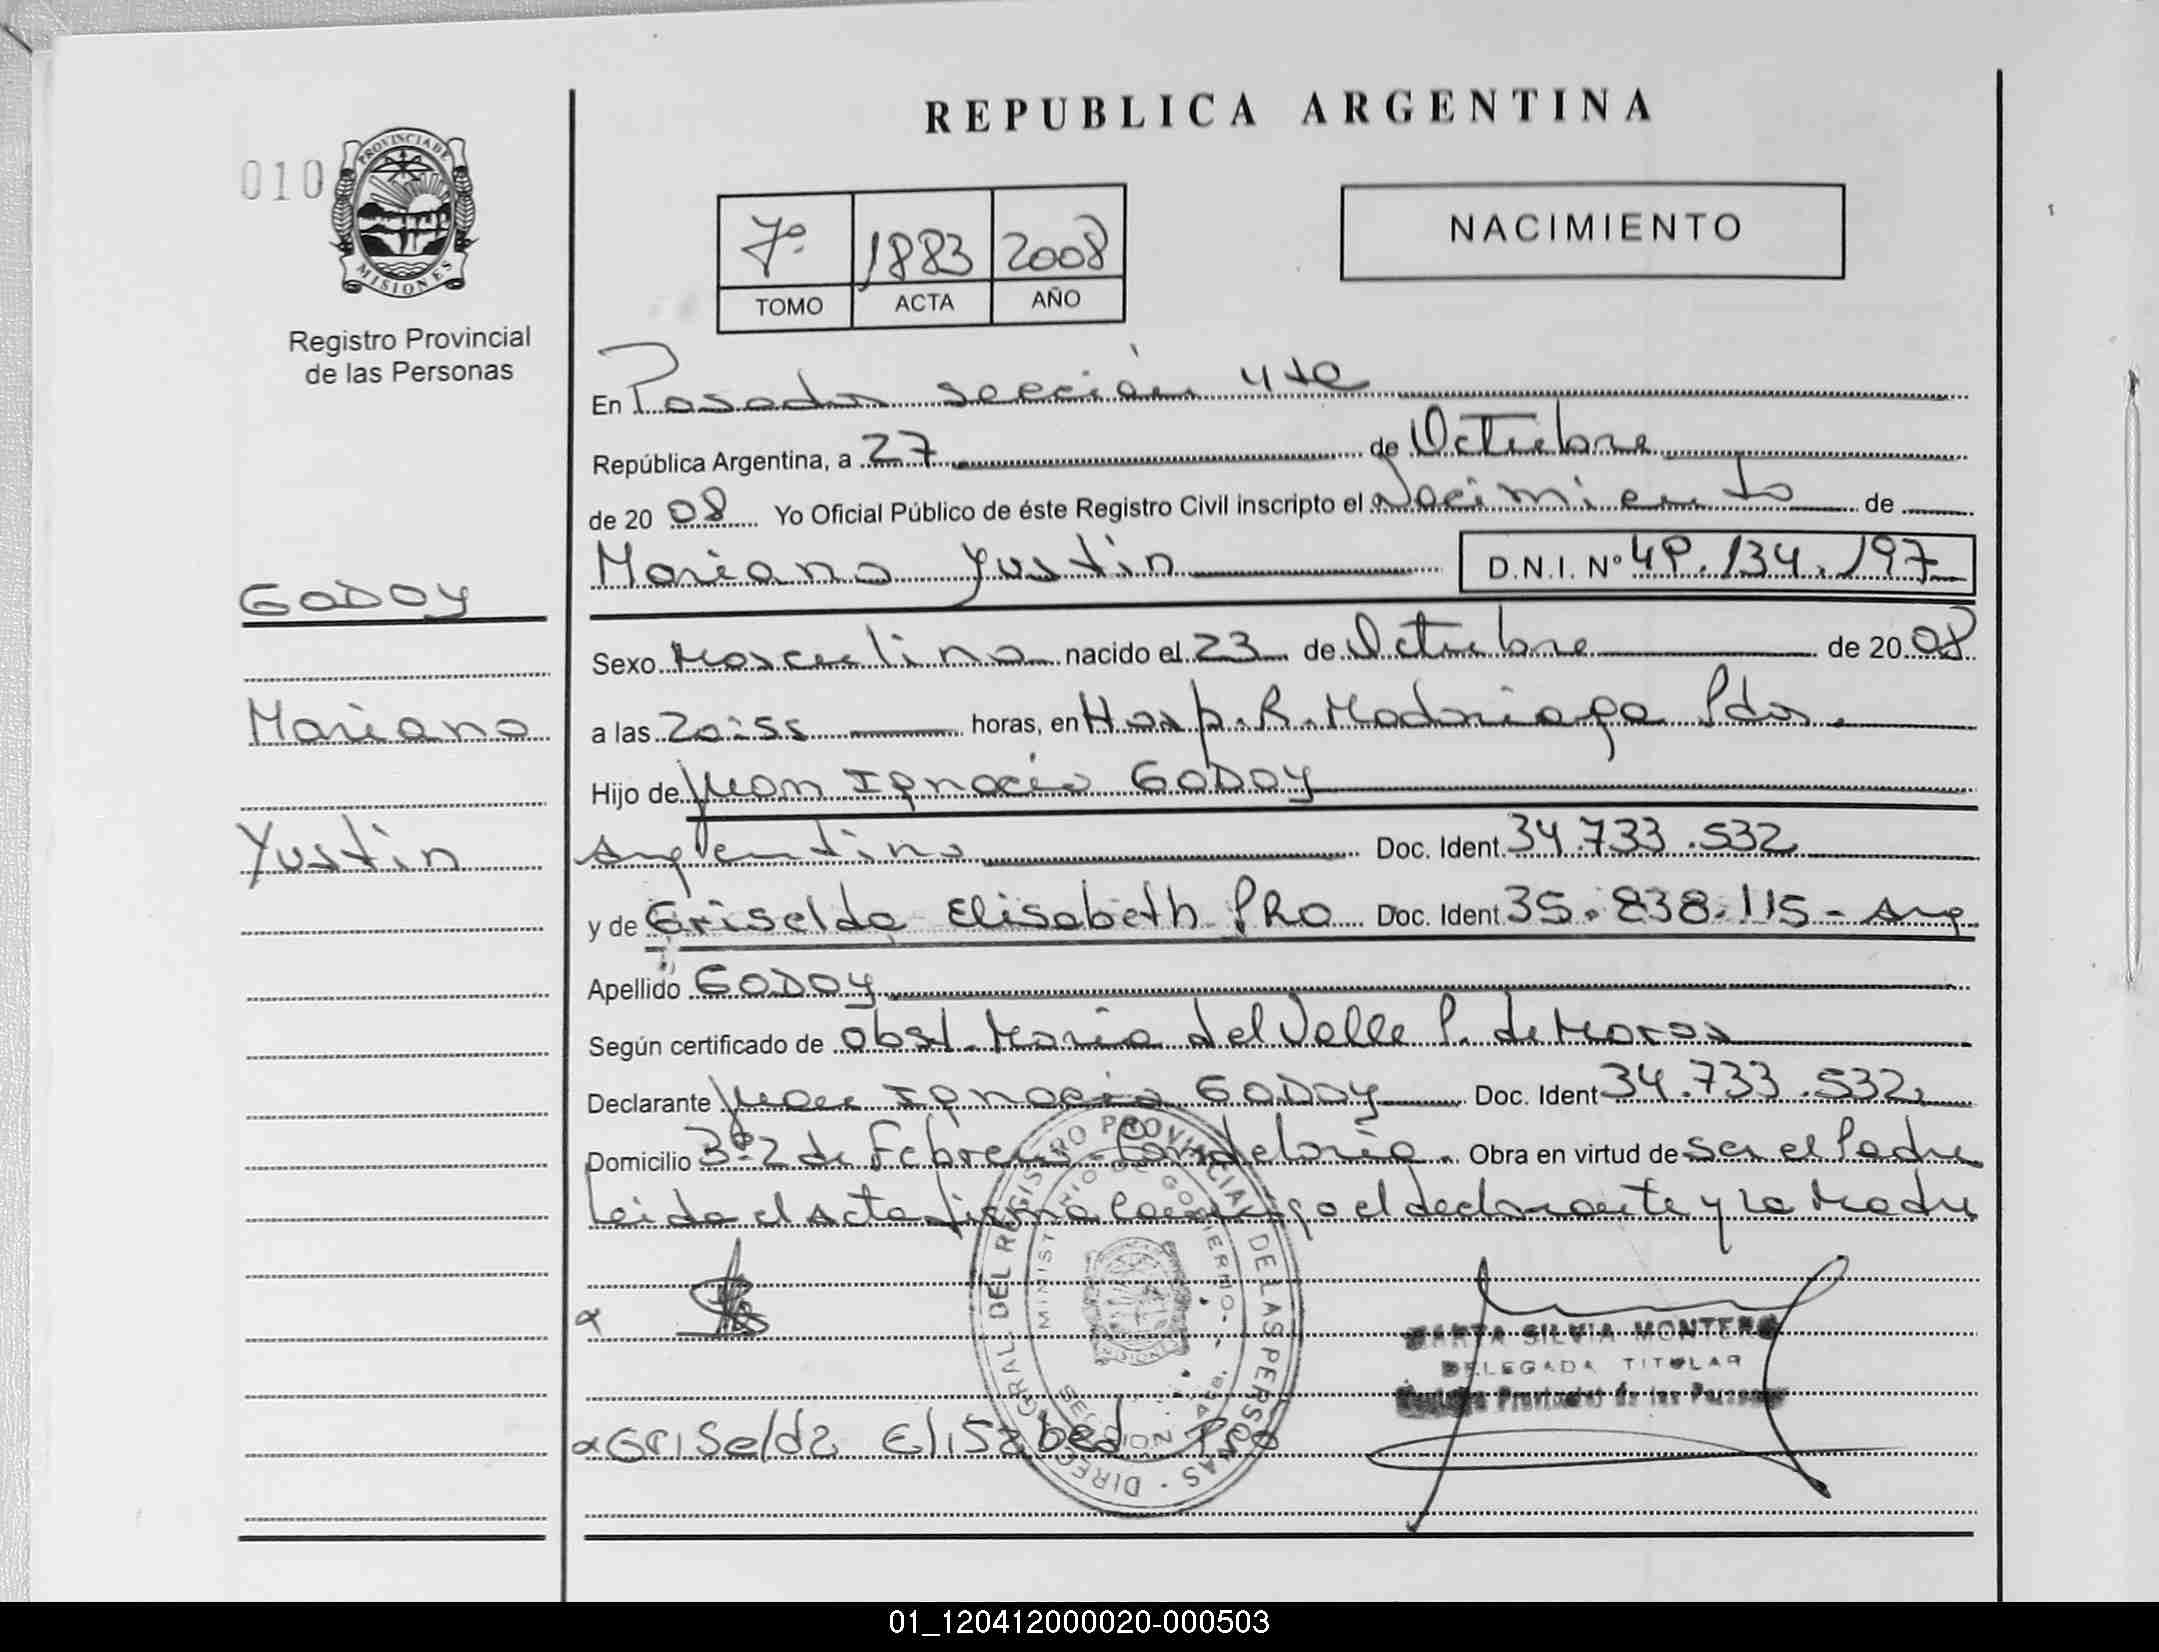 REPUBLICA ARGENTINA
010
PROVINCIA DE
MISIONES
Registro Provincial
de las Personas
7º 1883 2008
TOMO ACTA AÑO
NACIMIENTO
En Posadas sección 4ta
República Argentina, a 27 de Octubre
de 20 08 Yo Oficial Público de éste Registro Civil inscripto el Nacimiento de
Mariano Yustin D.N.I. Nº 49.134.197
GODOY
Mariano
Yustin
Sexo Masculino nacido el 23 de Octubre de 20 08
a las 20:55 horas, en Hosp. R. Madariaga Pdas.
Hijo de Juan Ignacio GODOY
Argentino Doc. Ident. 34.733.532
y de Griselda Elisabeth PRO Doc. Ident. 35.838.115 - Arg
Apellido GODOY
Según certificado de Obst. Maria del Valle P. de
Declarante Juan Ignacio GODOY Doc. Ident 34.733.532
Domicilio 3º 2 de Febrero - Candelaria. Obra en virtud de ser el Padre
Leida el Acta firma conmigo el declarante y la Madre
DIREC GRAL. DEL REGISTRO PROVINCIAL DE LAS PERSONAS
MINISTERIO DE GOBIERNO
SECCION
MISIONES
MARTA SILVIA MONTERO
DELEGADA TITULAR
Registro Provincial de las Personas
Griselda Elisabed Pro
01_120412000020-000503